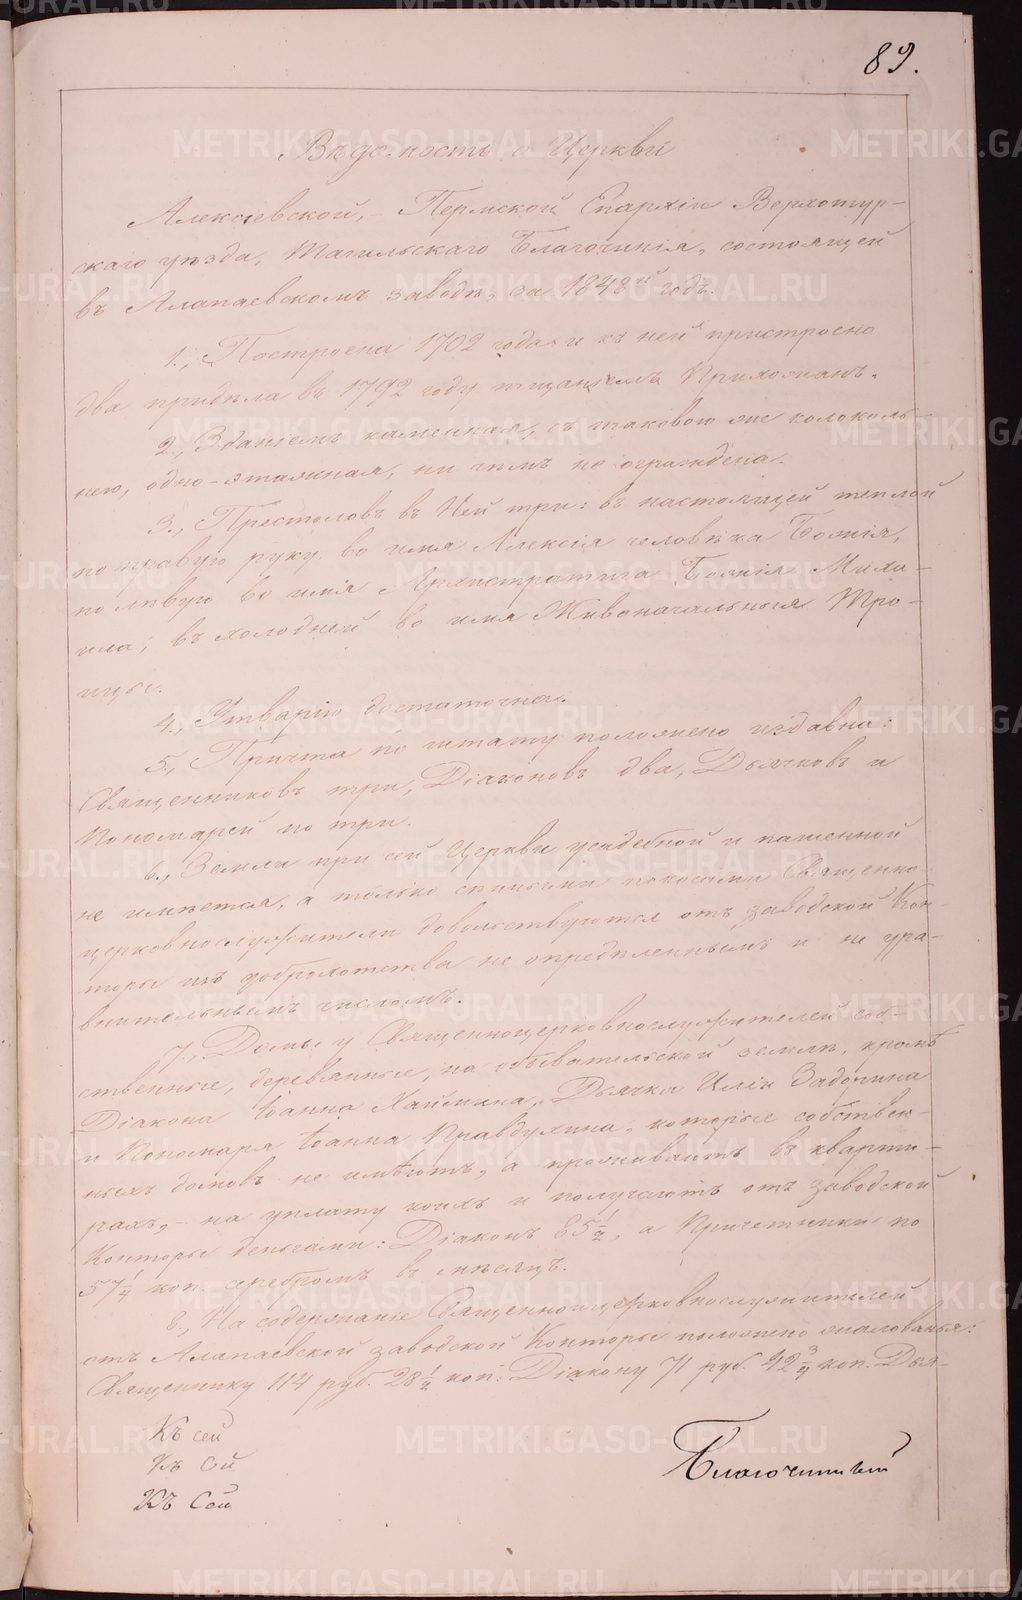 89.
Вѣдомость о Церкви
Алексіевской, Пермской Епархіи Верхотур-
скаго уѣзда, Тагильскаго Благочинія, состоящей
въ Алапаевскомъ заводѣ, за 1848й годъ.
1., Построена 1702 года и къ ней пристроено
два придѣла въ 1792 году тщаніемъ Прихожанъ.
2., Зданіемъ каменная, съ таковою же колоколь-
нею, одно-этажная, ни чѣмъ не ограждена.
3., Престоловъ въ Ней три: въ настоящей теплой
по правую руку во имя Алексія человѣка Божія,
по лѣвую во имя Архистратига Божія Миха-
ила; въ холодней во имя Живоначальныя Тро-
ицы.
4., Утварію достаточна.
5., Причта по штату положено издавна:
Священниковъ три, Діаконовъ два, Дьячковъ и
Пономарей по три.
6., Земли при сей Церкви усадебной и пашенной
не имѣется, а только сѣнными покосами Священно
церковнослужители довольствуются отъ заводской Кон-
торы изъ доброхотства не опредѣленнымъ и не ура-
внительнымъ числомъ.
7., Домы у Священноцерковнослужителей соб-
ственные, деревянные, на обывательской землѣ, кромѣ
Діакона Іоанна Дьячка Иліи
и Пономаря Іоанна Правдухина, которые собствен-
ныхъ домовъ не имѣютъ, а проживаютъ въ кварти-
рахъ, на уплату коихъ и получаютъ отъ заводской
Конторы деньгами: Діаконъ 85 1/2, а Причетники по
57 1/4 коп. серебромъ въ мѣсяцъ.
8., На содержаніе Священноцерковнослужителей
отъ Алапаевской заводской Конторы положено жалованья:
Священнику 114 руб. 28 1/2 коп: Діакону 71 руб. 42 3/4 коп. Дья-
Къ сей
Къ Сей
Къ Сей
Благочинный
METRIKI.GASO-URAL.RU